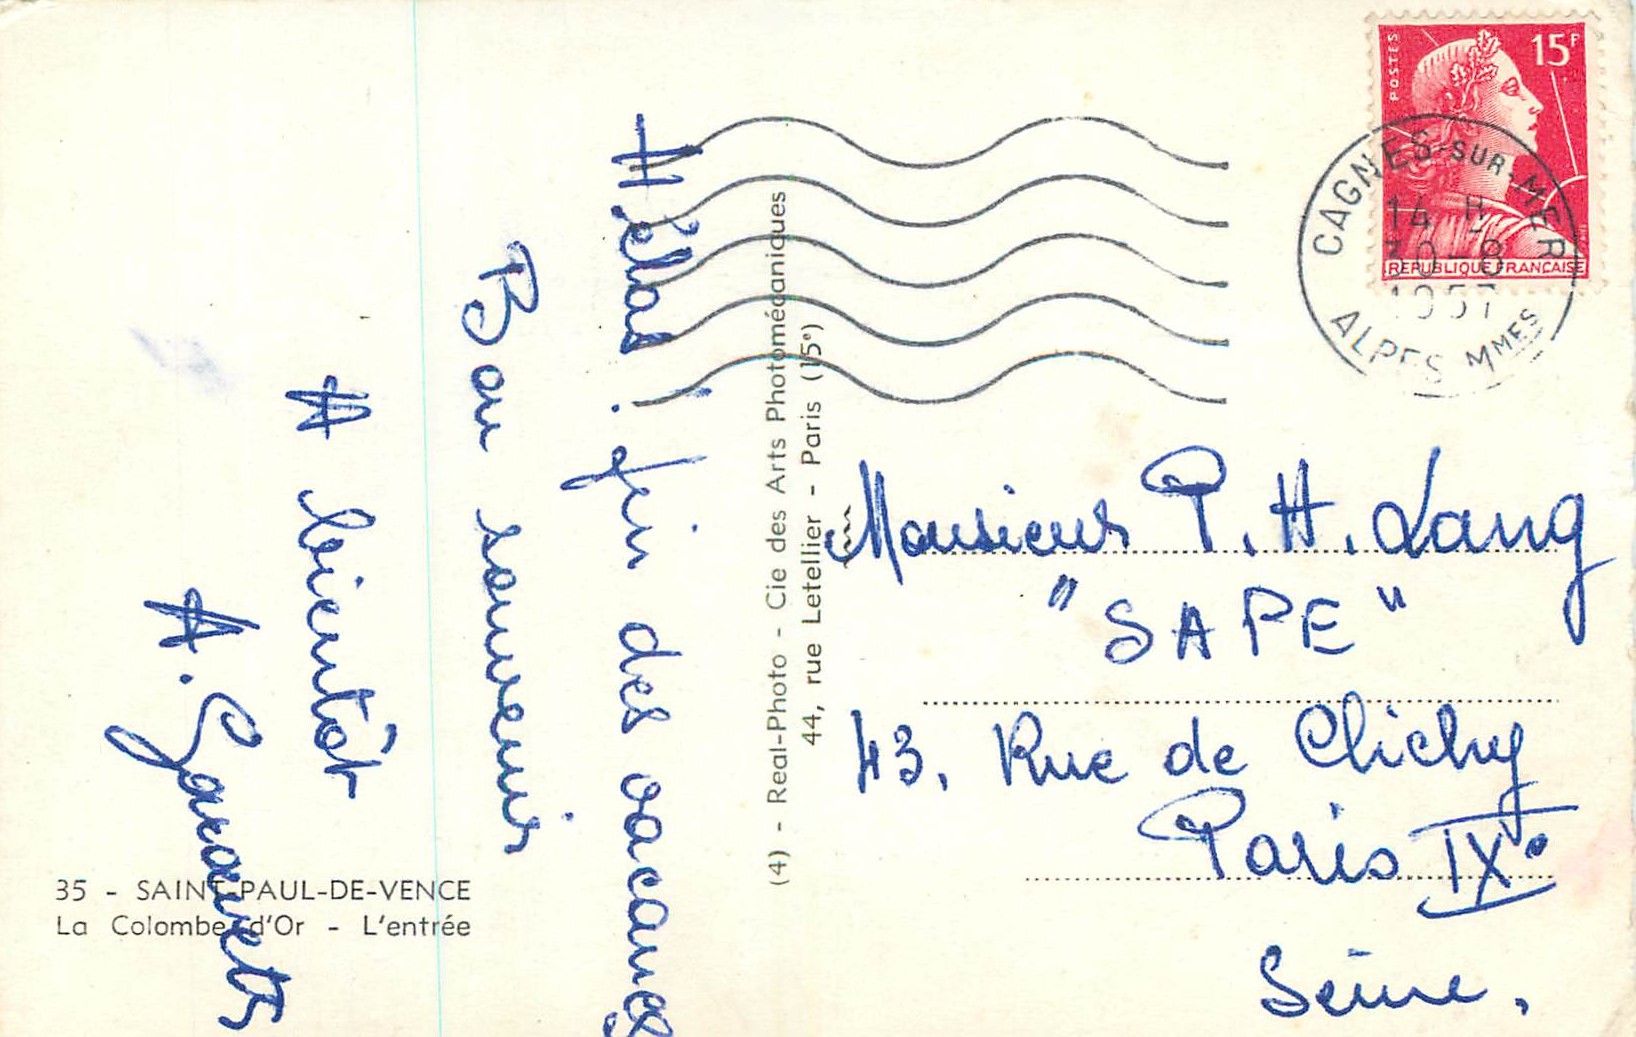 Hélas ! fin des vacances
Bon souvenir
A bientôt
35 - SAINT-PAUL-DE-VENCE
La Colombe d'Or - L'entrée
(4) - Real-Photo - Cie des Arts Photomécaniques
44, rue Letellier - Paris (15e)
POSTES
15F
REPUBLIQUE FRANÇAISE
CAGNES-SUR-MER
14 H
30-8
1957
ALPES MMES
Monsieur P. H. Lang
"SAPE"
43, Rue de Clichy
Paris IXe
Seine.